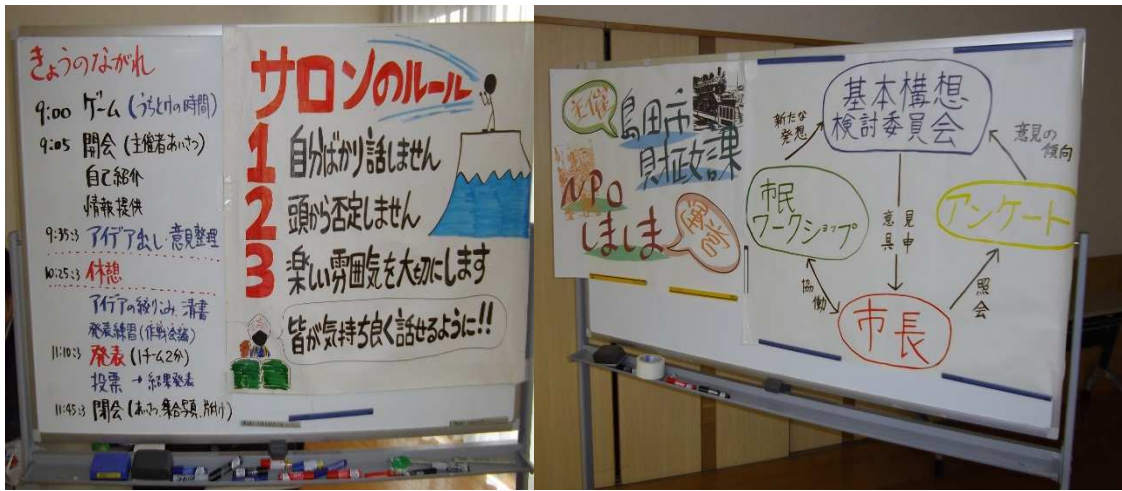 きょうのながれ
9:00 ゲーム (うちとけの時間)
9:05 開会 (主催者あいさつ)
自己紹介
情報提供
9:35:3 アイデア出し・意見整理
10:25:3 休憩
アイデアの絞りこみ、清書
発表練習 (作戦会議)
11:10:3 発表 (1チーム2分)
投票 → 結果発表
11:45:3 閉会 (あいさつ、集合写真、片付け)
サロンのルール
1 自分ばかり話しません
2 頭から否定しません
3 楽しい雰囲気を大切にします
皆が気持ち良く話せるように!!
主催
島田市
財政課
NPO
しましま
運営
基本構想
検討委員会
新たな
発想
意見の
傾向
市民
ワークショップ
アンケート
意見
具申
協働
照会
市長